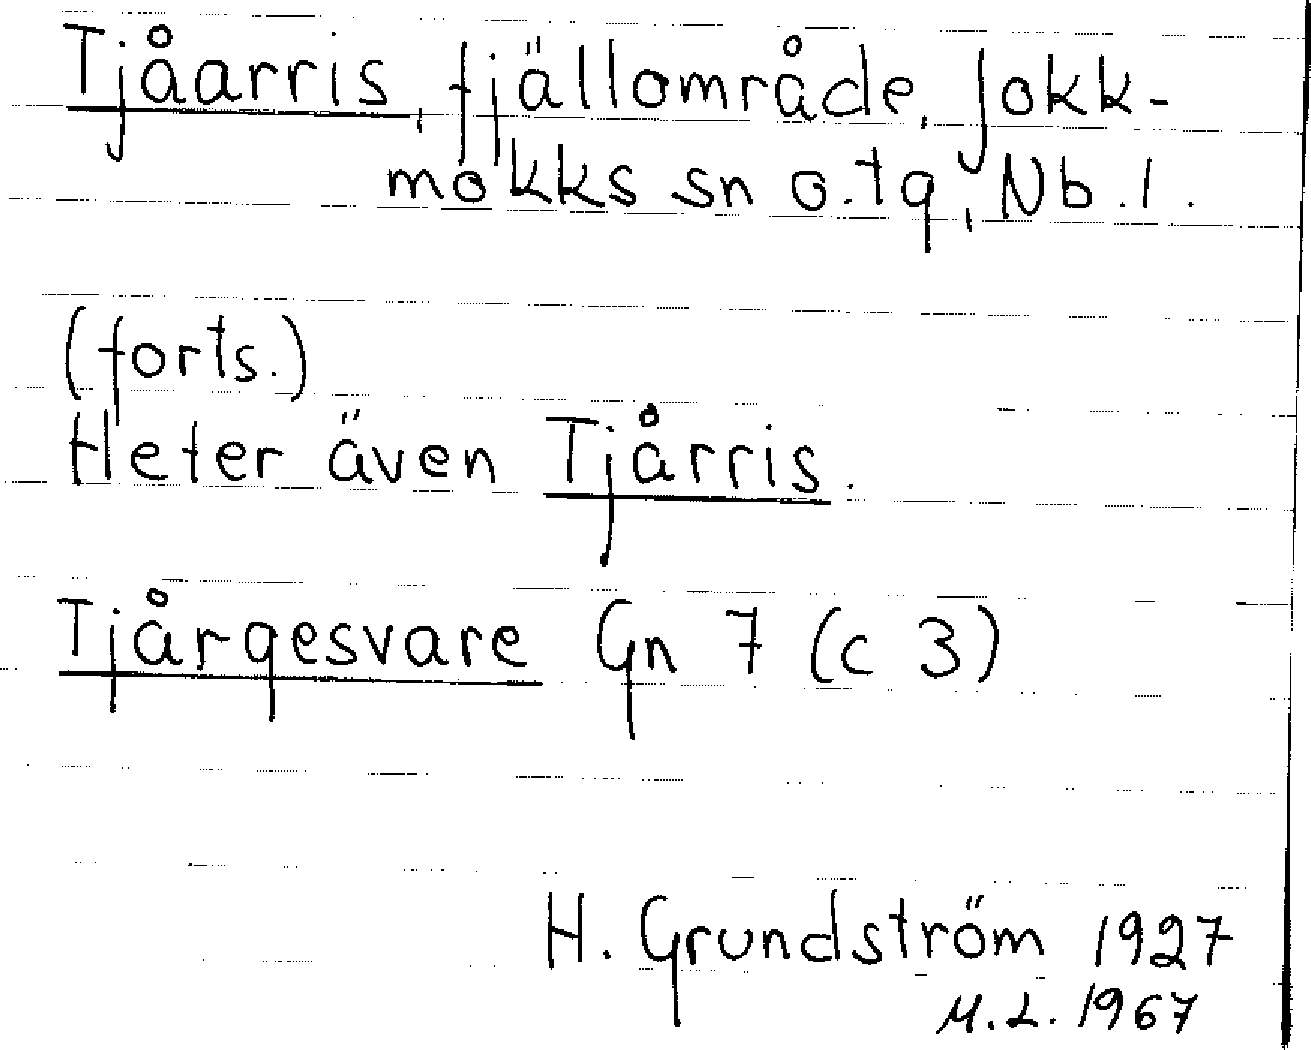 Tjåarris, fjällområde, Jokk-
mokks sn o. tg, Nb. l.
(forts.)
Heter även Tjårris.
Tjårgesvare Gn 7 (c 3)
H. Grundström 1927
M.L. 1967